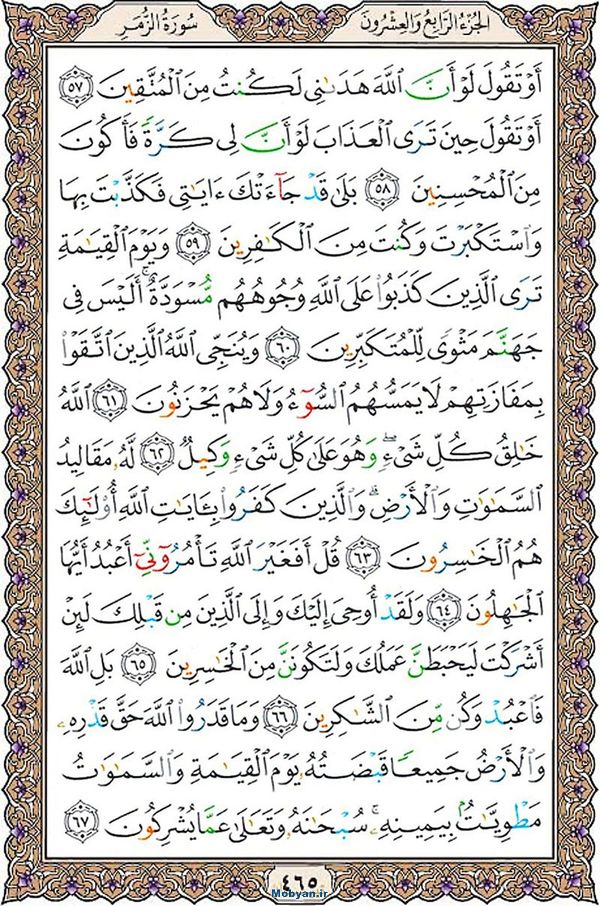 الجُزْءُ الرَّابِعُ وَالعِشْرُونَ سُورَةُ الزُّمَرِ
أَوْ تَقُولَ لَوْ أَنَّ اللَّهَ هَدَىٰنِى لَكُنتُ مِنَ الْمُتَّقِينَ ٥٧
أَوْ تَقُولَ حِينَ تَرَى الْعَذَابَ لَوْ أَنَّ لِى كَرَّةً فَأَكُونَ
مِنَ الْمُحْسِنِينَ ٥٨ بَلَىٰ قَدْ جَآءَتْكَ ءَايَٰتِى فَكَذَّبْتَ بِهَا
وَاسْتَكْبَرْتَ وَكُنتَ مِنَ الْكَٰفِرِينَ ٥٩ وَيَوْمَ الْقِيَٰمَةِ
تَرَى الَّذِينَ كَذَبُوا۟ عَلَى اللَّهِ وُجُوهُهُم مُّسْوَدَّةٌ ۚ أَلَيْسَ فِى
جَهَنَّمَ مَثْوًى لِّلْمُتَكَبِّرِينَ ٦٠ وَيُنَجِّى اللَّهُ الَّذِينَ اتَّقَوْا۟
بِمَفَازَتِهِمْ لَا يَمَسُّهُمُ السُّوٓءُ وَلَا هُمْ يَحْزَنُونَ ٦١ اللَّهُ
خَٰلِقُ كُلِّ شَىْءٍ ۖ وَهُوَ عَلَىٰ كُلِّ شَىْءٍ وَكِيلٌ ٦٢ لَّهُۥ مَقَالِيدُ
السَّمَٰوَٰتِ وَالْأَرْضِ ۗ وَالَّذِينَ كَفَرُوا۟ بِـَٔايَٰتِ اللَّهِ أُو۟لَٰٓئِكَ
هُمُ الْخَٰسِرُونَ ٦٣ قُلْ أَفَغَيْرَ اللَّهِ تَأْمُرُوٓنِّىٓ أَعْبُدُ أَيُّهَا
الْجَٰهِلُونَ ٦٤ وَلَقَدْ أُوحِىَ إِلَيْكَ وَإِلَى الَّذِينَ مِن قَبْلِكَ لَئِنْ
أَشْرَكْتَ لَيَحْبَطَنَّ عَمَلُكَ وَلَتَكُونَنَّ مِنَ الْخَٰسِرِينَ ٦٥ بَلِ اللَّهَ
فَاعْبُدْ وَكُن مِّنَ الشَّٰكِرِينَ ٦٦ وَمَا قَدَرُوا۟ اللَّهَ حَقَّ قَدْرِهِۦ
وَالْأَرْضُ جَمِيعًا قَبْضَتُهُۥ يَوْمَ الْقِيَٰمَةِ وَالسَّمَٰوَٰتُ
مَطْوِيَّٰتٌۢ بِيَمِينِهِۦ ۚ سُبْحَٰنَهُۥ وَتَعَٰلَىٰ عَمَّا يُشْرِكُونَ ٦٧
٤٦٥
Mobyan.ir